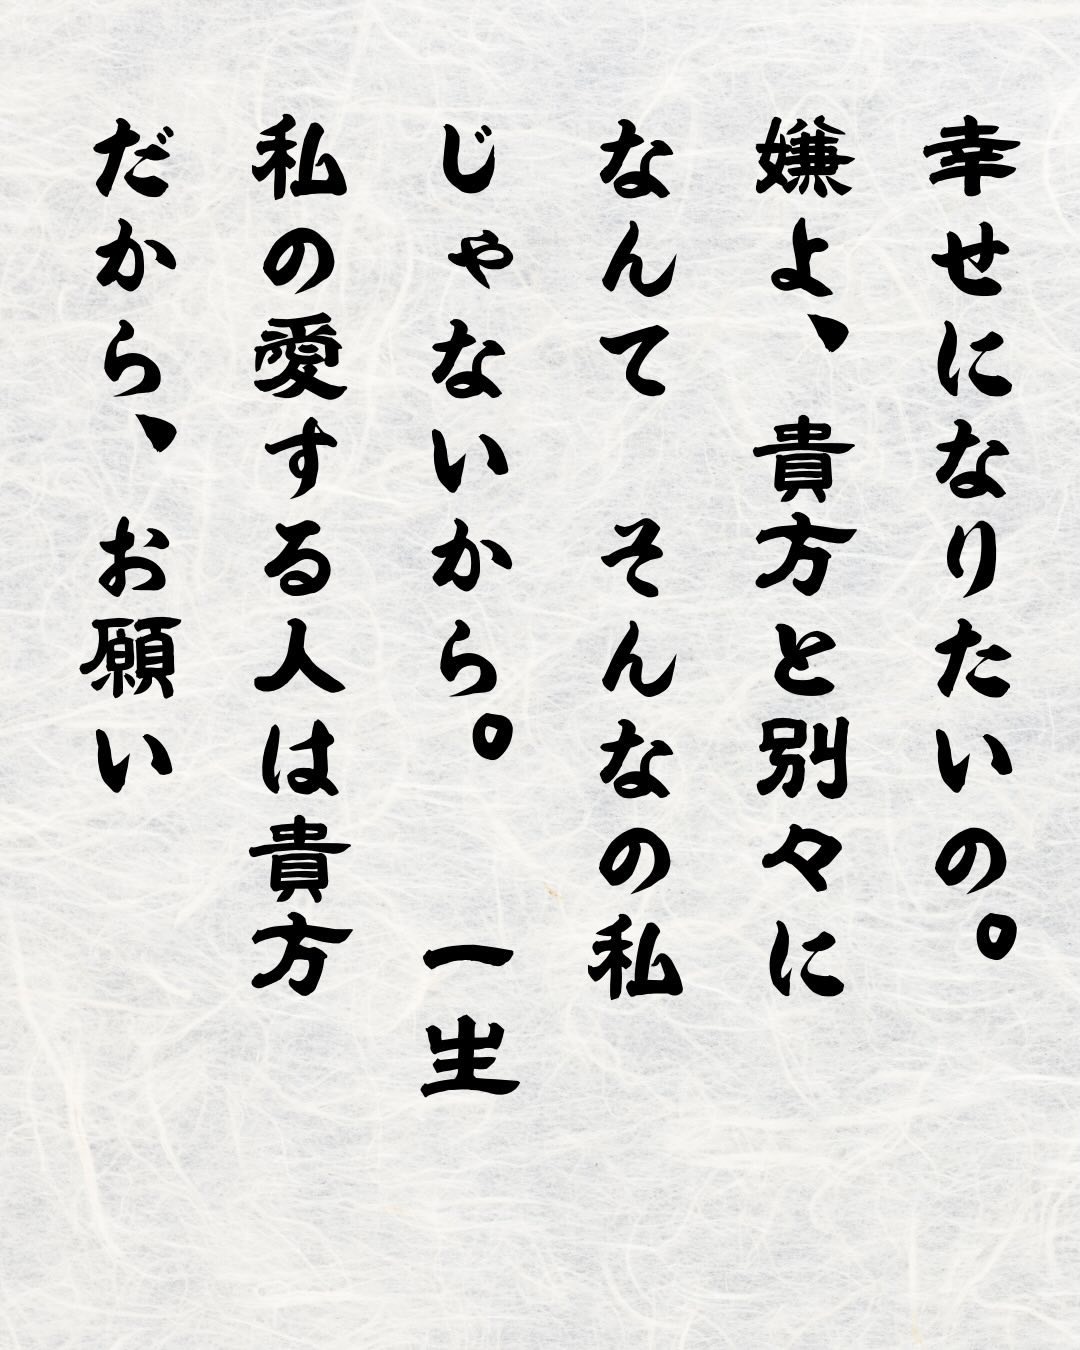 幸せになりたいの。
嫌よ、貴方と別々に
なんて　そんなの私
じゃないから。　一生
私の愛する人は貴方
だから、お願い